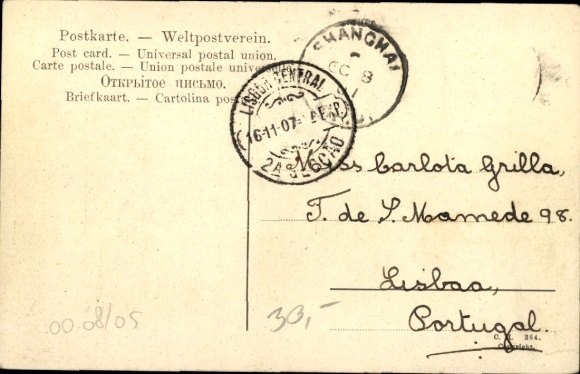 Postkarte. — Weltpostverein.
Post card. — Universal postal union.
Carte postale. — Union postale univers
Открытое письмо.
Briefkaart. — Cartolina post
SHANGHAI
OC 8
LISBOA CENTRAL
16-11-07
2A SECÇÃO
Miss Carlota Grilla,
T. de S. Mamede 98.
Lisboa,
Portugal.
00.08/05
30,-
C. H. 384.
Copyright.